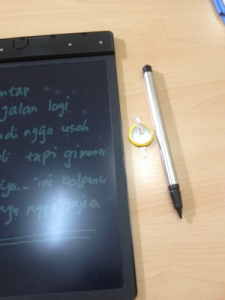 ntap
jalan logi
di ngga usah
li tapi gimana
ya... ini bolpen